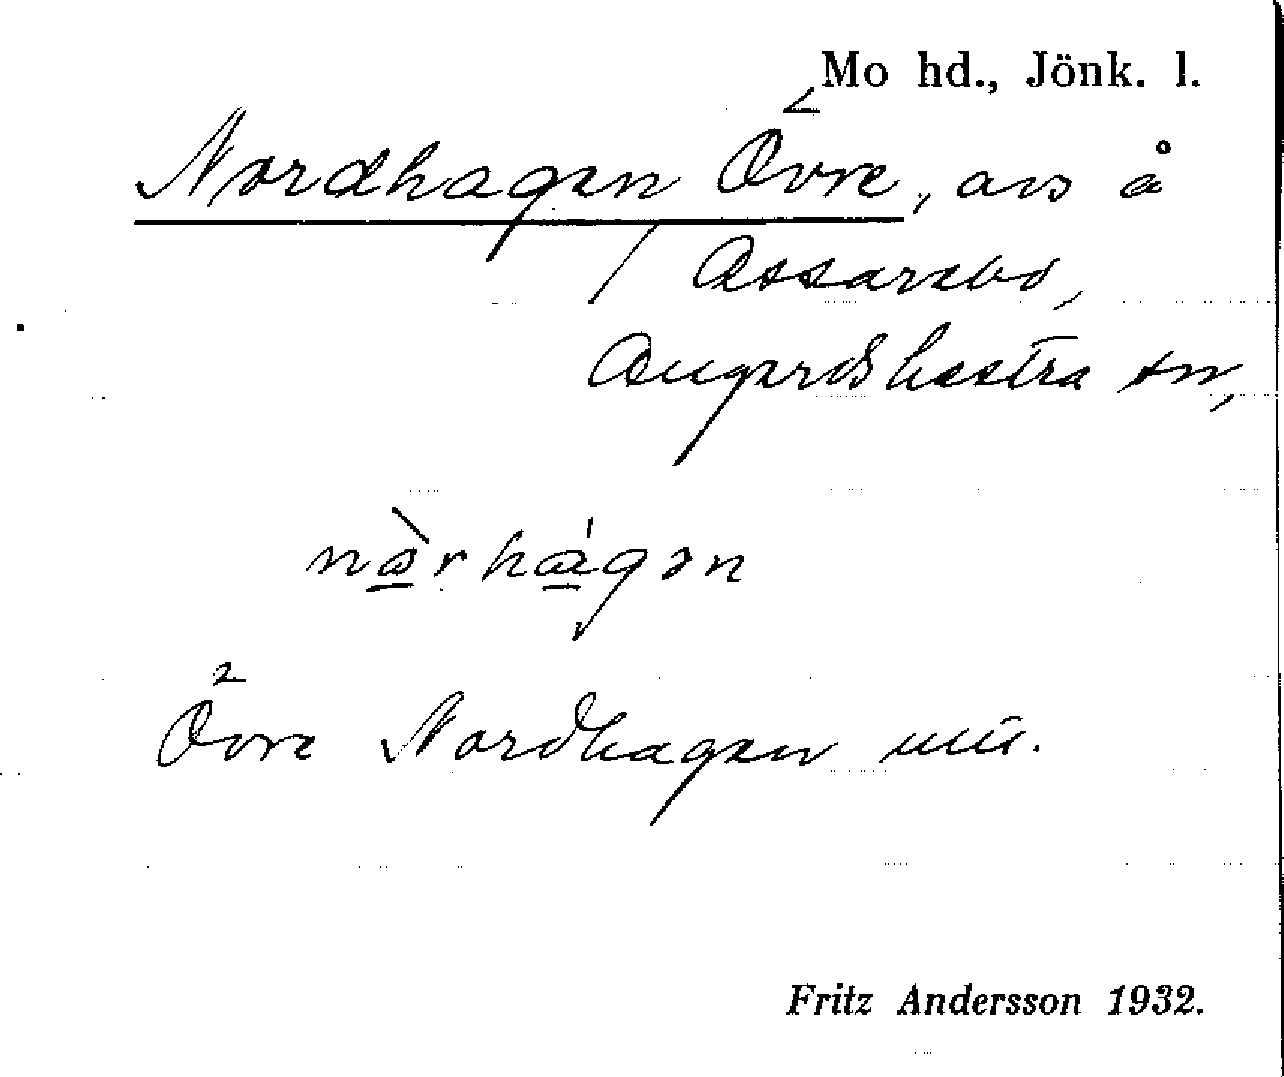 Mo hd., Jönk. l.
Nordhagen Övre, avs å
Assarebo,
Angerdshestra sn,
nàrhágən
Övre Nordhagen
Fritz Andersson 1932.